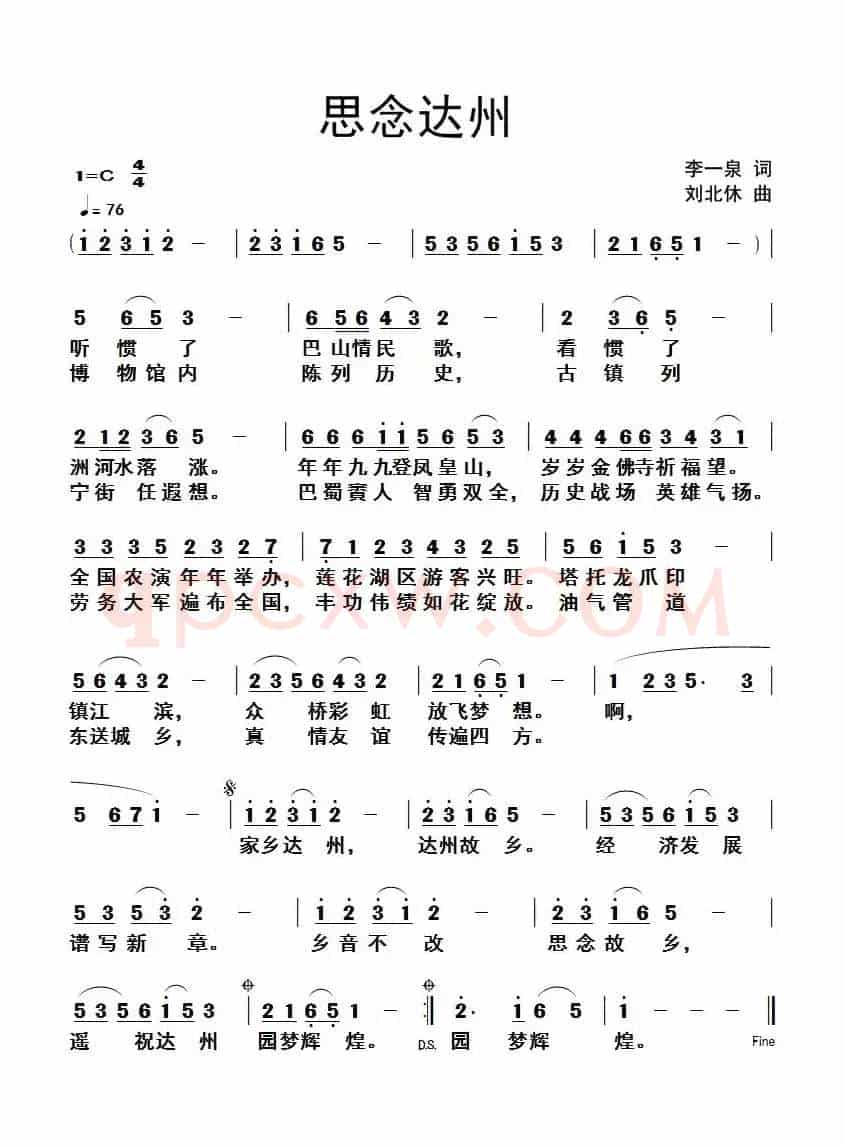 思念达州
1=C 4/4
李一泉 词
♩= 76
刘北休 曲
( 1̇ 2̇ 3̇ 1̇ 2̇ － | 2̇ 3̇ 1̇ 6 5 － | 5 3 5 6 1̇ 5 3 | 2 1 6̣ 5̣ 1 － ) |
5 6 5 3 － | 6 5 6 4 3 2 － | 2 3 6̣ 5̣ － |
听 惯 了 巴 山 情 民 歌， 看 惯 了
博 物 馆 内 陈 列 历 史， 古 镇 列
2 1 2 3 6 5 － | 6 6 6 1̇ 1̇ 5 6 5 3 | 4 4 4 6 6 3 4 3 1 |
洲 河 水 落 涨。 年 年 九 九 登 凤 皇 山， 岁 岁 金 佛 寺 祈 福 望。
宁 街 任 遐 想。 巴 蜀 賨 人 智 勇 双 全， 历 史 战 场 英 雄 气 扬。
3 3 3 5 2 3 2 7̣ | 7̣ 1 2 3 4 3 2 5 | 5 6 1̇ 5 3 － |
全 国 农 演 年 年 举 办， 莲 花 湖 区 游 客 兴 旺。 塔 托 龙 爪 印
劳 务 大 军 遍 布 全 国， 丰 功 伟 绩 如 花 绽 放。 油 气 管 道
qpcxw.COM
5 6 4 3 2 － | 2 3 5 6 4 3 2 | 2 1 6̣ 5̣ 1 － | 1 2 3 5· 3 |
镇 江 滨， 众 桥 彩 虹 放 飞 梦 想。 啊，
东 送 城 乡， 真 情 友 谊 传 遍 四 方。
5 6 7 1̇ － | 1̇ 2̇ 3̇ 1̇ 2̇ － | 2̇ 3̇ 1̇ 6 5 － | 5 3 5 6 1̇ 5 3 |
家 乡 达 州， 达 州 故 乡。 经 济 发 展
5 3 5 3̇ 2̇ － | 1̇ 2̇ 3̇ 1̇ 2̇ － | 2̇ 3̇ 1̇ 6 5 － |
谱 写 新 章。 乡 音 不 改 思 念 故 乡，
5 3 5 6 1̇ 5 3 | 2 1 6̣ 5̣ 1 － :‖ 2̇· 1̇ 6 5 | 1̇ － － － ‖
遥 祝 达 州 园 梦 辉 煌。 D.S. 园 梦 辉 煌。 Fine